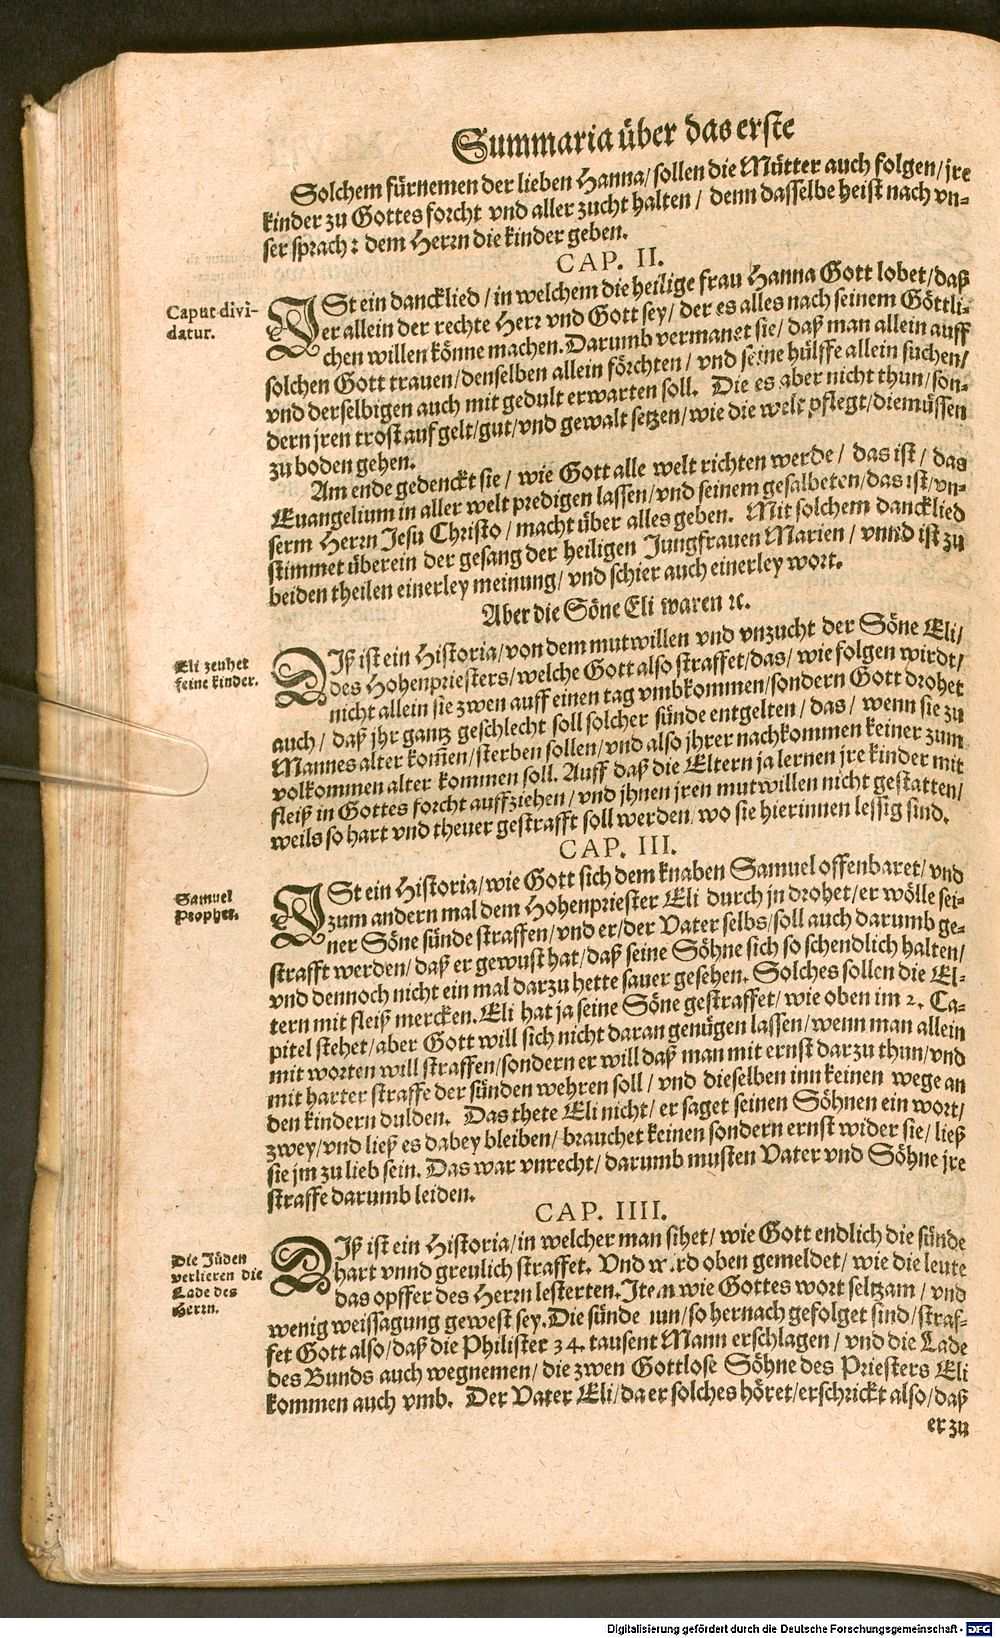 Summaria über das erste
Solchem fürnemen der lieben Hanna/ sollen die Mütter auch folgen/ jre
kinder zu Gottes forcht vnd aller zucht halten/ denn dasselbe heist nach vn-
ser sprach: dem Herrn die kinder geben.
CAP. II.
Caput divi-
datur.
ISt ein dancklied/ in welchem die heilige frau Hanna Gott lobet/ daß
er allein der rechte Herr vnd Gott sey/ der es alles nach seinem Göttli-
chen willen könne machen. Darumb vermanet sie/ daß man allein auff
solchen Gott trauen/ denselben allein förchten/ vnd seine hülffe allein suchen/
vnd derselbigen auch mit gedult erwarten soll. Die es aber nicht thun/ son-
dern jren trost auf gelt/ gut/ vnd gewalt setzen/ wie die welt pflegt/ die müssen
zu boden gehen.
Am ende gedenckt sie/ wie Gott alle welt richten werde/ das ist/ das
Euangelium in aller welt predigen lassen/ vnd seinem gesalbeten/ das ist/ vn-
serm Herrn Jesu Christo/ macht über alles geben. Mit solchem dancklied
stimmet überein der gesang der heiligen Jungfrauen Marien/ vnnd ist zu
beiden theilen einerley meinung/ vnd schier auch einerley wort.
Aber die Söne Eli waren ꝛc.
Eli zeuhet
seine kinder.
DIß ist ein Historia/ von dem mutwillen vnd vnzucht der Söne Eli/
des Hohenpriesters/ welche Gott also straffet/ das/ wie folgen wirdt/
nicht allein sie zwen auff einen tag vmbkommen/ sondern Gott drohet
auch/ daß jhr gantz geschlecht soll solcher sünde entgelten/ das/ wenn sie zu
Mannes alter kom̄en/ sterben sollen/ vnd also jhrer nachkommen keiner zum
volkommen alter kommen soll. Auff daß die Eltern ja lernen jre kinder mit
fleiß in Gottes forcht auffziehen/ vnd jhnen jren mutwillen nicht gestatten/
weils so hart vnd theuer gestrafft soll werden/ wo sie hierinnen lessig sind.
CAP. III.
Samuel
Prophet.
ISt ein Historia/ wie Gott sich dem knaben Samuel offenbaret/ vnd
zum andern mal dem Hohenpriester Eli durch jn drohet/ er wölle sei-
ner Söne sünde straffen/ vnd er/ der Vater selbs/ soll auch darumb ge-
strafft werden/ daß er gewust hat/ daß seine Söhne sich so schendlich halten/
vnd dennoch nicht ein mal darzu hette sauer gesehen. Solches sollen die El-
tern mit fleiß mercken. Eli hat ja seine Söne gestraffet/ wie oben im 2. Ca-
pitel stehet/ aber Gott will sich nicht daran genügen lassen/ wenn man allein
mit worten will straffen/ sondern er will daß man mit ernst darzu thun/ vnd
mit harter straffe der sünden wehren soll/ vnd dieselben inn keinen wege an
den kindern dulden. Das thete Eli nicht/ er saget seinen Söhnen ein wort/
zwey/ vnd ließ es dabey bleiben/ brauchet keinen sondern ernst wider sie/ ließ
sie jm zu lieb sein. Das war vnrecht/ darumb musten Vater vnd Söhne jre
straffe darumb leiden.
CAP. IIII.
Die Jüden
verlieren die
Lade des
Herrn.
DIß ist ein Historia/ in welcher man sihet/ wie Gott endlich die sünde
hart vnnd greulich straffet. Vnd wird oben gemeldet/ wie die leute
das opffer des Herrn lesterten. Item wie Gottes wort seltzam/ vnd
wenig weissagung gewest sey. Die sünde nun/ so hernach gefolget sind/ straf-
fet Gott also/ daß die Philister 34. tausent Mann erschlagen/ vnd die Lade
des Bunds auch wegnemen/ die zwen Gottlose Söhne des Priesters Eli
kommen auch vmb. Der Vater Eli/ da er solches höret/ erschrickt also/ daß
er zu
Digitalisierung gefördert durch die Deutsche Forschungsgemeinschaft - DFG